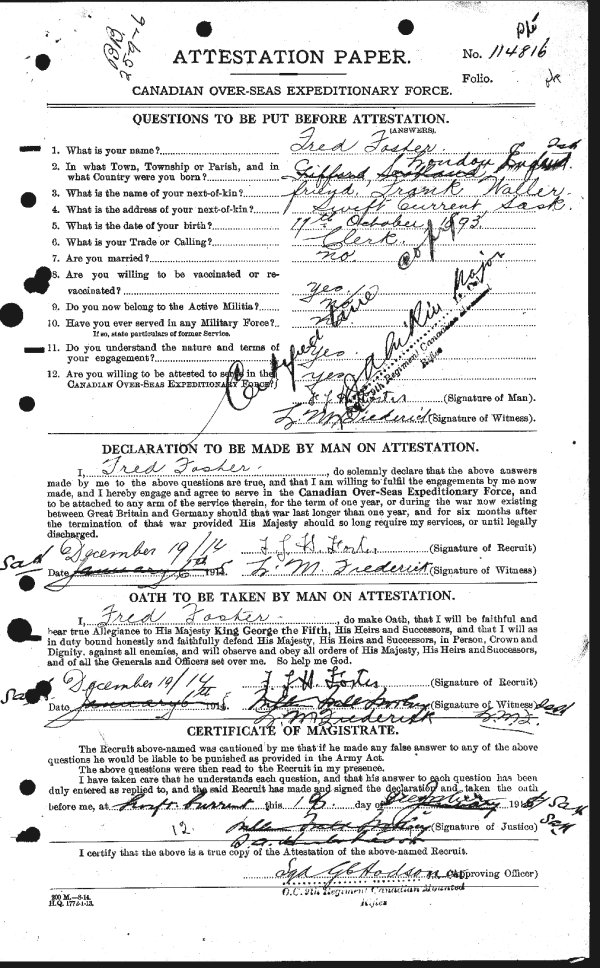 No. 114816
ATTESTATION PAPER.
Folio.
CANADIAN OVER-SEAS EXPEDITIONARY FORCE.
QUESTIONS TO BE PUT BEFORE ATTESTATION.
(ANSWERS).
1. What is your name? Fred Foster
2. In what Town, Township or Parish, and in
what Country were you born? London England
3. What is the name of your next-of-kin? friend, Frank Waller
4. What is the address of your next-of-kin? Swift Current Sask.
5. What is the date of your birth? 17th October 1893
6. What is your Trade or Calling? Clerk
7. Are you married? no
8. Are you willing to be vaccinated or re-
vaccinated? Yes
9. Do you now belong to the Active Militia? No
10. Have you ever served in any Military Force?
If so, state particulars of former Service.
11. Do you understand the nature and terms of
your engagement? Yes
12. Are you willing to be attested to serve in the
CANADIAN OVER-SEAS EXPEDITIONARY FORCE? Yes
Certified true copy
Major
9th Regiment Canadian Mounted
Rifles
(Signature of Man).
L. M. Frederick (Signature of Witness).
DECLARATION TO BE MADE BY MAN ON ATTESTATION.
I, Fred Foster, do solemnly declare that the above answers
made by me to the above questions are true, and that I am willing to fulfil the engagements by me now
made, and I hereby engage and agree to serve in the Canadian Over-Seas Expeditionary Force, and
to be attached to any arm of the service therein, for the term of one year, or during the war now existing
between Great Britain and Germany should that war last longer than one year, and for six months after
the termination of that war provided His Majesty should so long require my services, or until legally
discharged.
December 19/14 (Signature of Recruit)
Date January 6th 1915 L. M. Frederick (Signature of Witness)
OATH TO BE TAKEN BY MAN ON ATTESTATION.
I, Fred Foster, do make Oath, that I will be faithful and
bear true Allegiance to His Majesty King George the Fifth, His Heirs and Successors, and that I will as
in duty bound honestly and faithfully defend His Majesty, His Heirs and Successors, in Person, Crown and
Dignity, against all enemies, and will observe and obey all orders of His Majesty, His Heirs and Successors,
and of all the Generals and Officers set over me. So help me God.
December 19/14 (Signature of Recruit)
Date January 6th 1915 (Signature of Witness)
L. M. Frederick
CERTIFICATE OF MAGISTRATE.
The Recruit above-named was cautioned by me that if he made any false answer to any of the above
questions he would be liable to be punished as provided in the Army Act.
The above questions were then read to the Recruit in my presence.
I have taken care that he understands each question, and that his answer to each question has been
duly entered as replied to, and the said Recruit has made and signed the declaration and taken the oath
before me, at Swift Current this 19 day of December 191
12. (Signature of Justice)
I certify that the above is a true copy of the Attestation of the above-named Recruit.
Sgd G C Hodson (Approving Officer)
O.C. 9th Regiment Canadian Mounted
Rifles
200 M.—8-14.
H.Q. 1772-1-13.